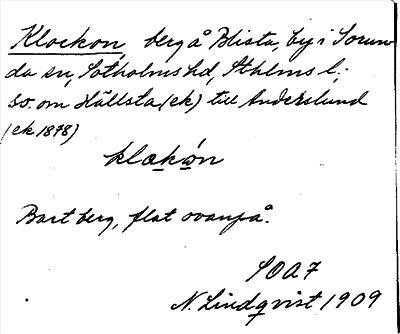 Klockon, berg å Blista, by i Sorun-
da sn, Sotholms hd, Sthlms l;
so. om Hällsta (ek) till Anderslund
(ek 1878)
klɔkón
Bart berg, flat ovanpå.
SOA 7
N. Lindqvist 1909